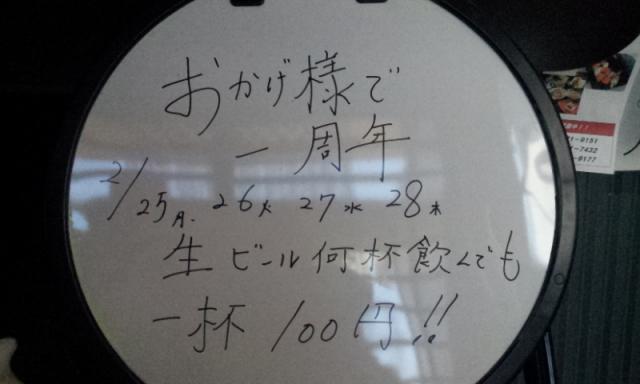 おかげ様で
一周年
2/25月. 26火 27水 28木
生ビール何杯飲んでも
一杯 100円!!